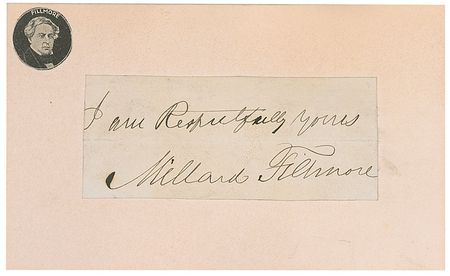 FILLMORE
I am Respectfully yours
Millard Fillmore